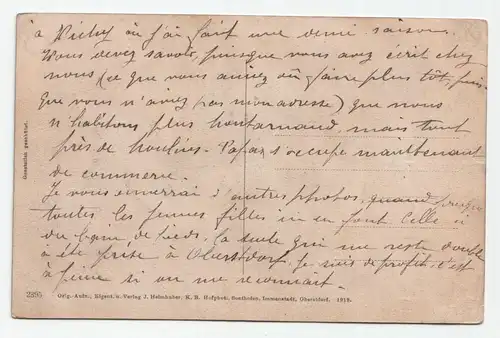 à Vichy où j'ai fait une demi saison.
Vous devez savoir, puisque vous avez écrit chez
nous (ce que vous auriez pu faire plus tôt, puis-
que vous n'aviez pas mon adresse) que nous
n'habitons plus mais tout
près de Moulins. Papa s'occupe maintenant
de commerce.
Je vous enverrai d'autres photos, quand
toutes les jeunes filles m'en font. Celle ci
du bain de pieds, la seule qui me reste double
a été prise à Oberstdorf, je suis de profil, c'est
à peine si on me reconnait.
Generalien gewidmet.
2895 Orig.-Aufn., Eigent. u. Verlag J. Heimhuber, K. B. Hofphot., Sonthofen, Immenstadt, Oberstdorf. 1912.